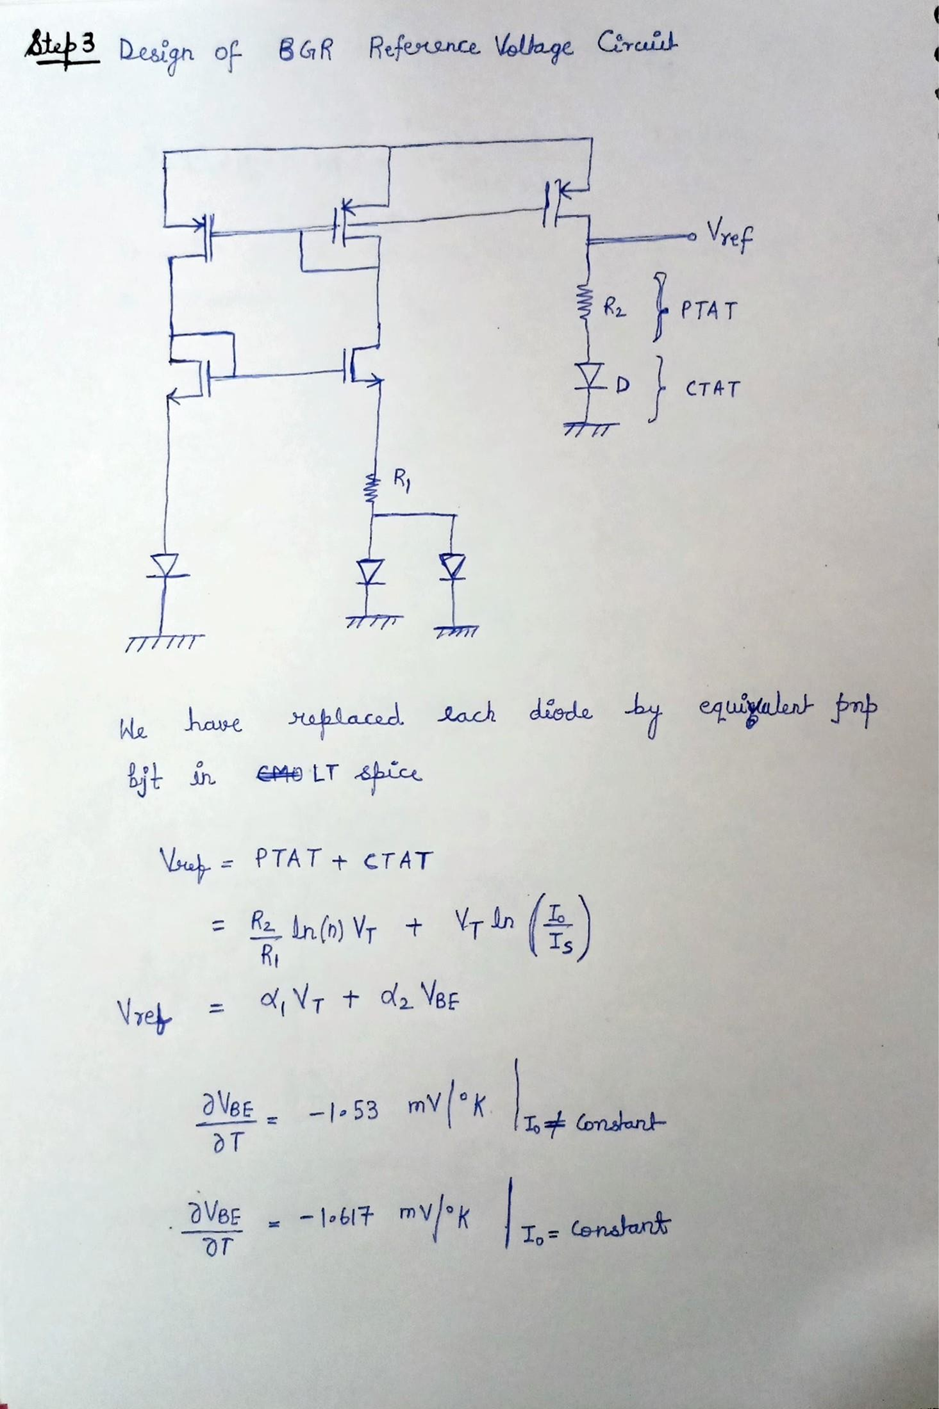 Step 3 Design of BGR Reference Voltage Circuit
Vref
R₂ } PTAT
D } CTAT
R₁
We have replaced each diode by equivalent pnp
bjt in LT spice
Vref = PTAT + CTAT
= R₂/R₁ ln(n) V_T + V_T ln (I₀/I_S)
Vref = α₁ V_T + α₂ V_BE
∂V_BE/∂T = -1.53 mV/°K |I₀ ≠ Constant
∂V_BE/∂T = -1.617 mV/°K |I₀ = Constant